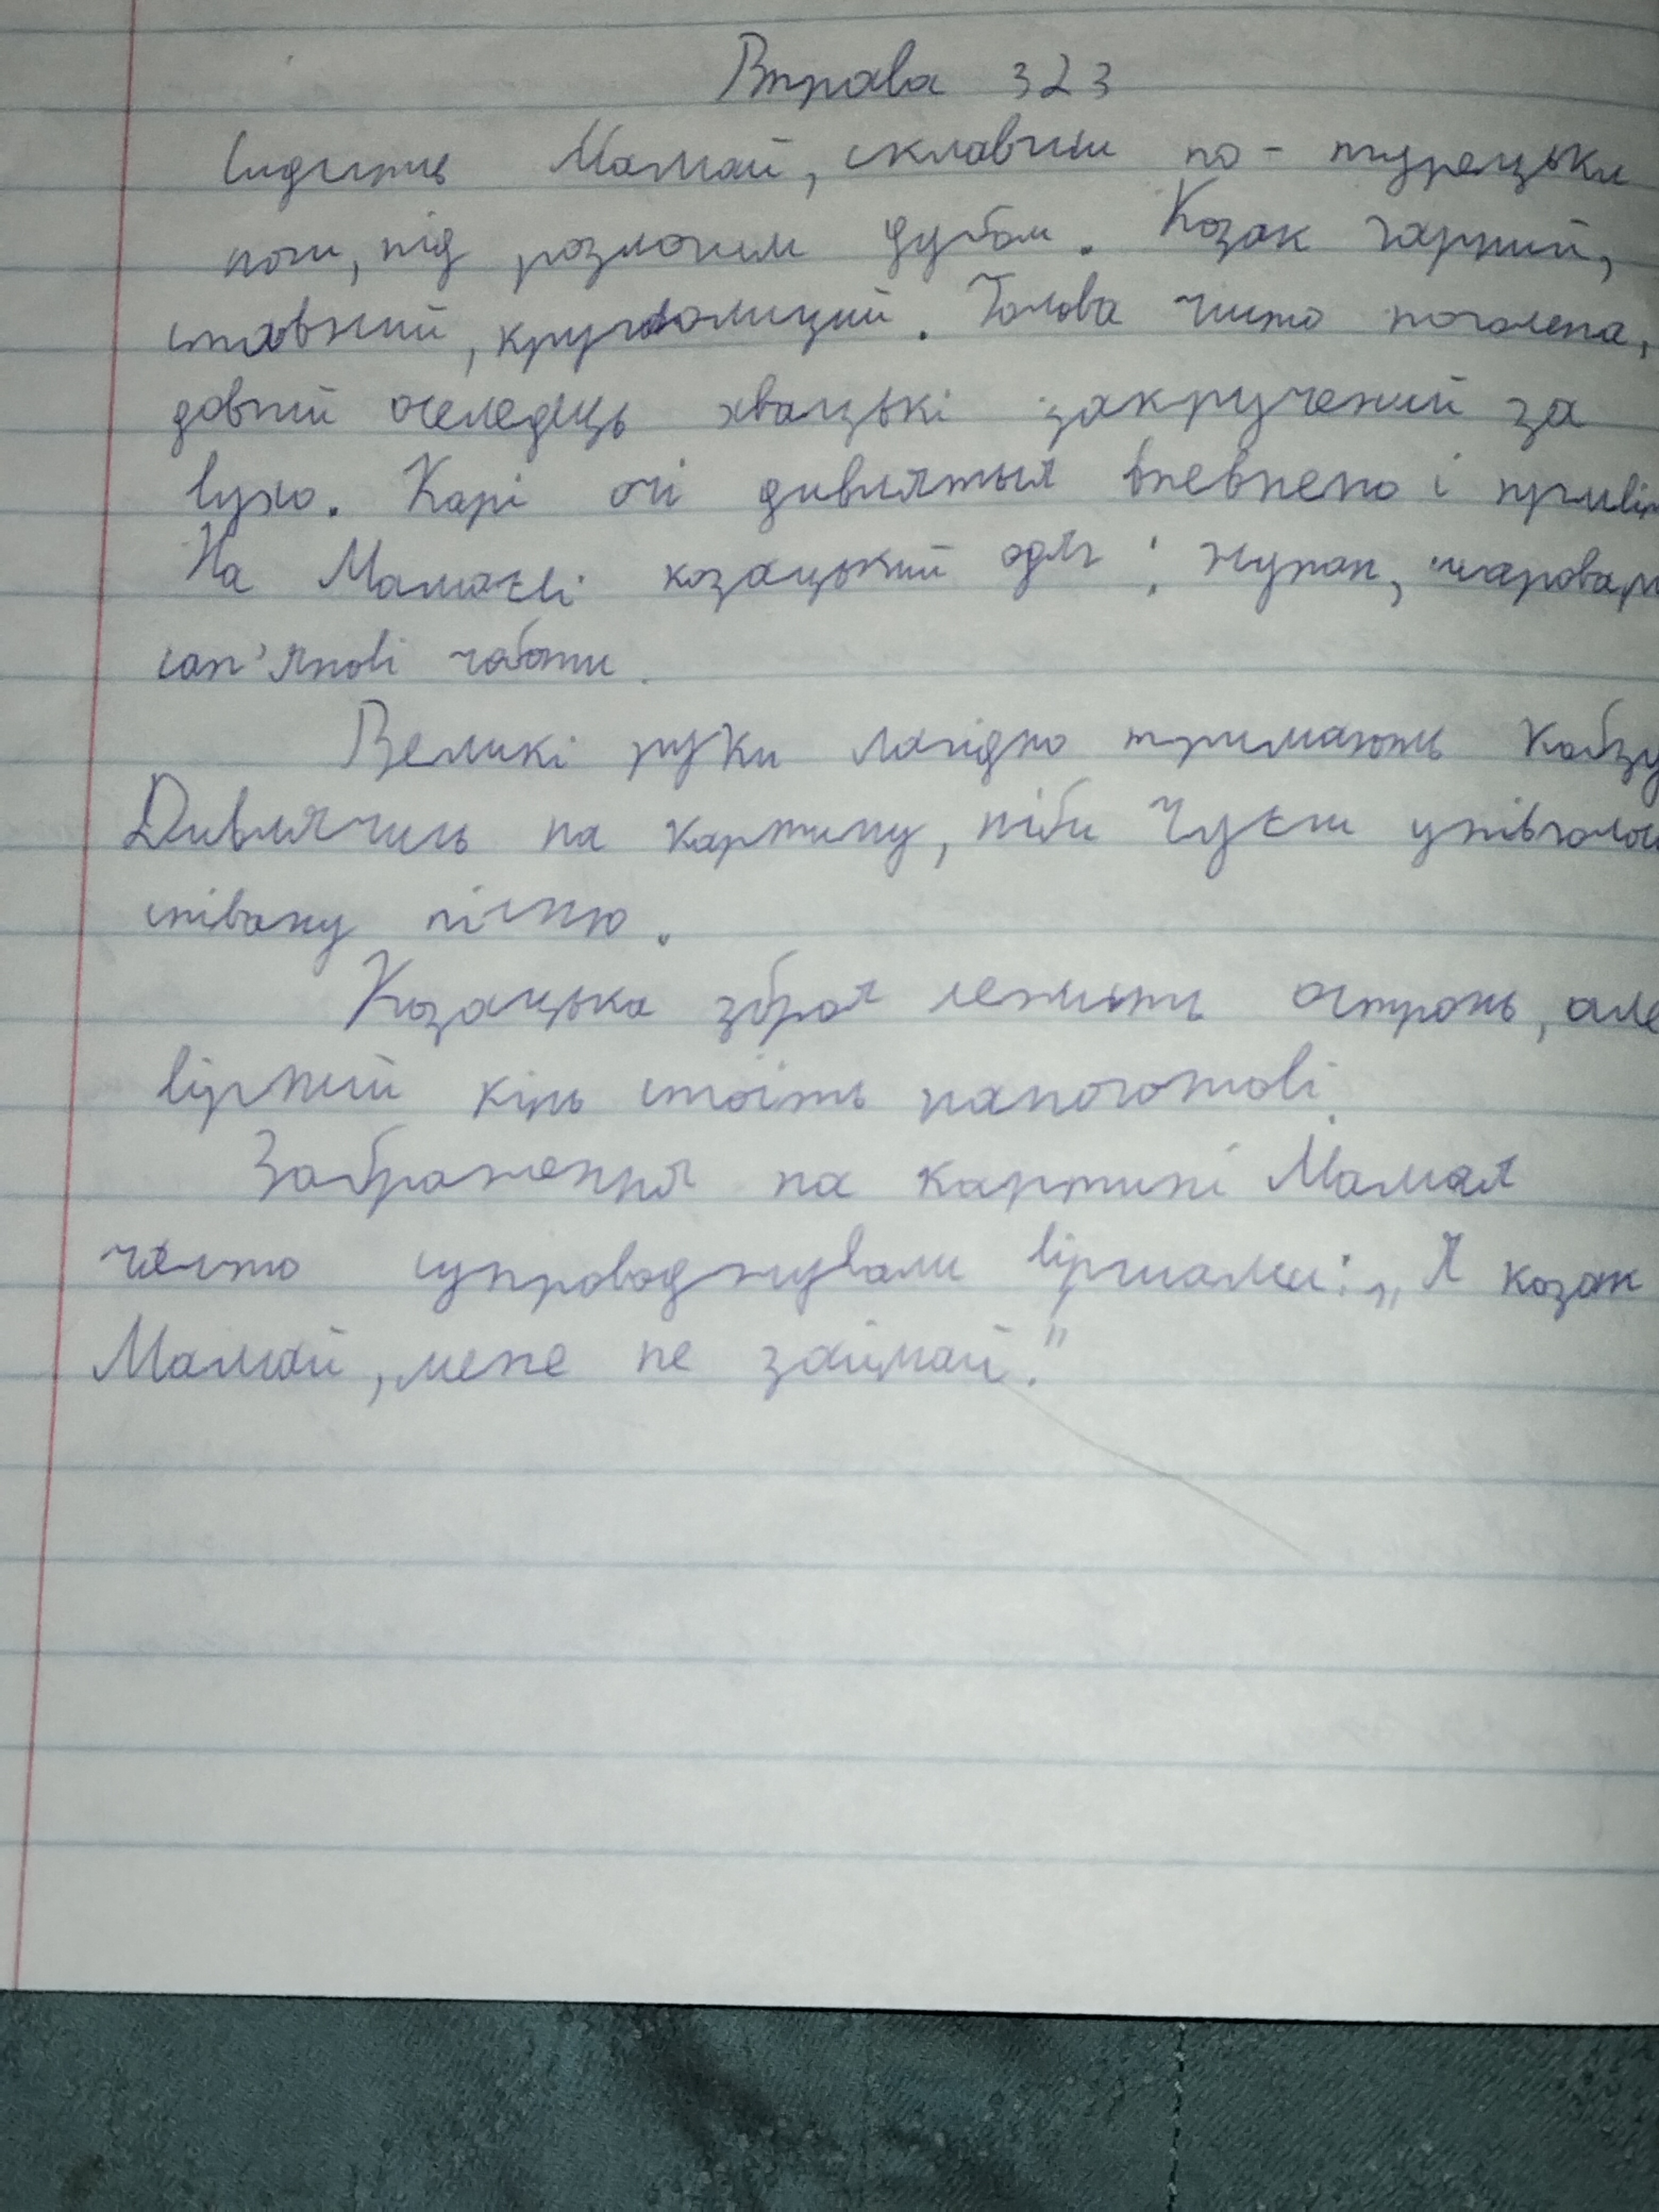 Вправа 323
Сидить Мамай, склавши по-турецьки
ноги, під розлогим дубом. Козак гарний,
ставний, круглолиций. Голова чисто поголена,
довгий оселедець хвацькі закручений за
вухо. Карі очі дивляться впевнено і
На Мамаєві козацький одяг: жупан, шаровари
сап'янові чоботи.
Великі руки лагідно тримають кобзу
Дивлячись на картину, ніби чуєш
співану пісню.
Козацька зброя лежить осторонь, але
вірний кінь стоїть напоготові.
Зображення на картині Мамая
часто супроводжували віршами: „Я козак
Мамай, мене не займай."